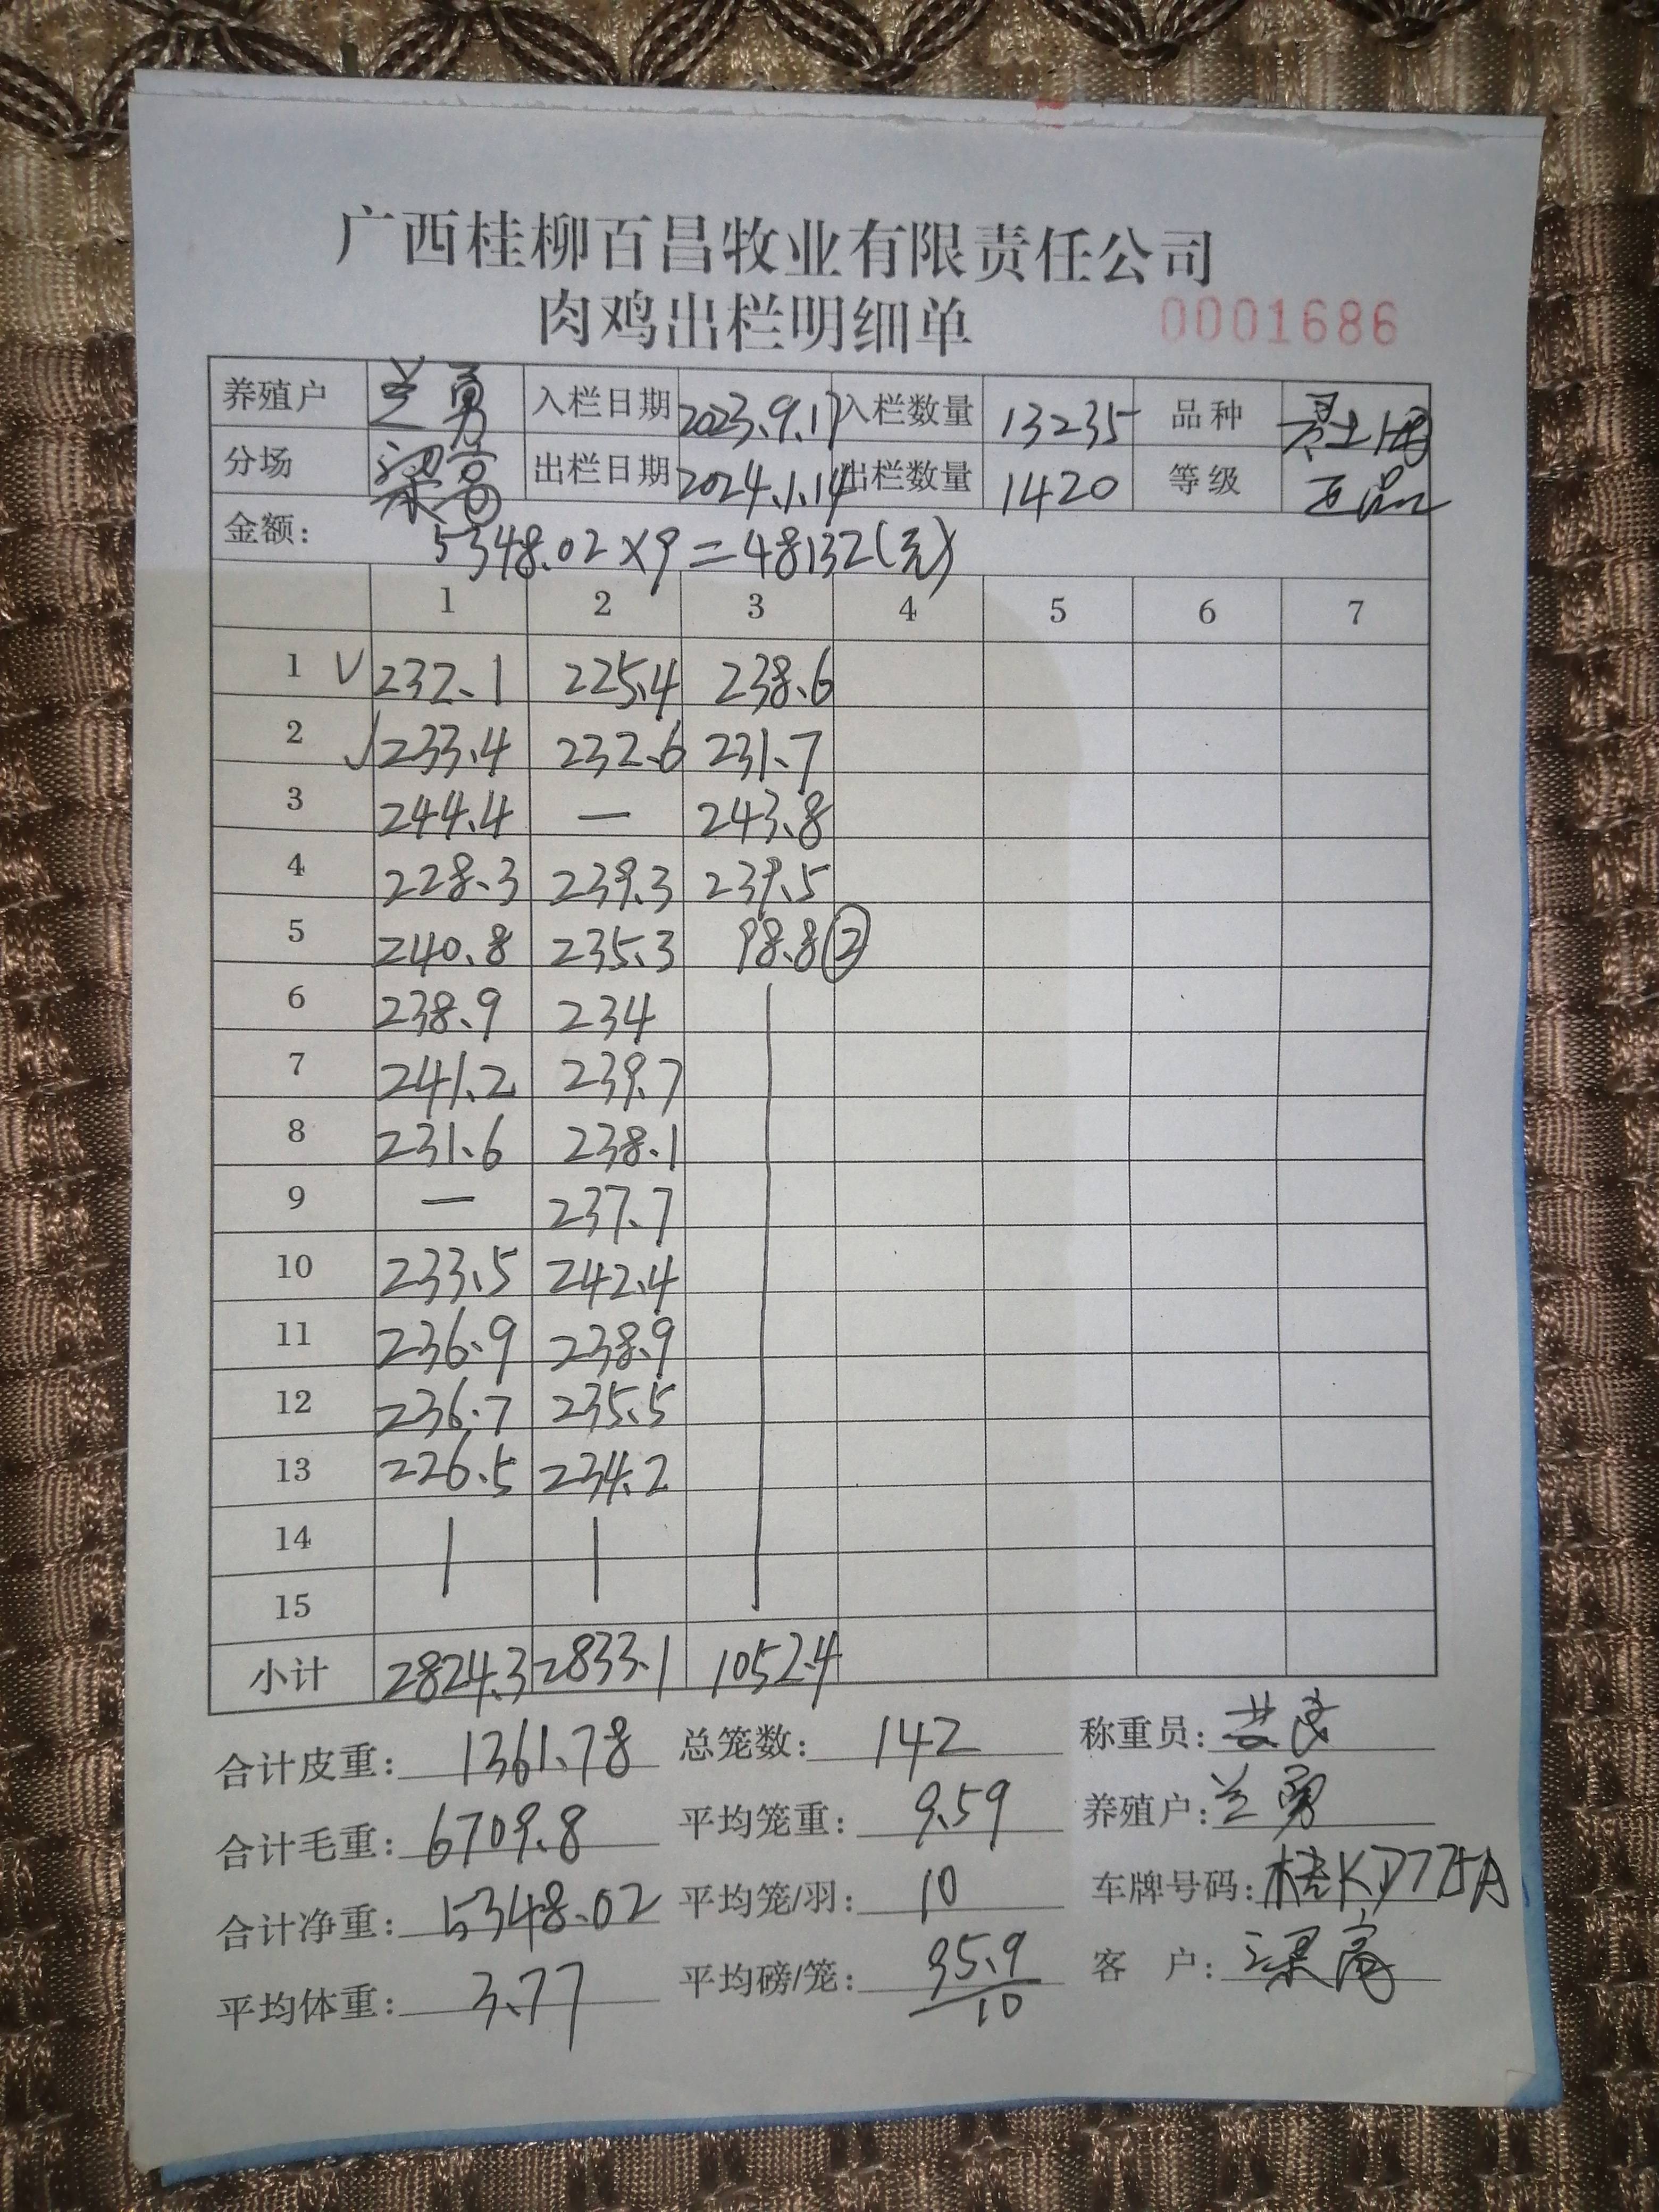 广西桂柳百昌牧业有限责任公司
肉鸡出栏明细单 0001686
养殖户 兰勇 入栏日期 2023.9.17 入栏数量 13235 品种
分场 出栏日期 2024.1.14 出栏数量 1420 等级
金额: 5348.02×9=48132(元)
1 2 3 4 5 6 7
1 √ 232.1 225.4 238.6
2 √ 233.4 232.6 231.7
3 244.4 — 243.8
4 228.3 239.3 239.5
5 240.8 235.3 98.8②
6 238.9 234
7 241.2 239.7
8 231.6 238.1
9 — 237.7
10 233.5 242.4
11 236.9 238.9
12 236.7 235.5
13 226.5 234.2
14
15
小计 2824.3 2833.1 1052.4
合计皮重: 1361.78 总笼数: 142 称重员:
合计毛重: 6709.8 平均笼重: 9.59 养殖户: 兰勇
合计净重: 5348.02 平均笼/羽: 10 车牌号码: 桂KD775A
平均体重: 3.77 平均磅/笼: 95.9/10 客户: